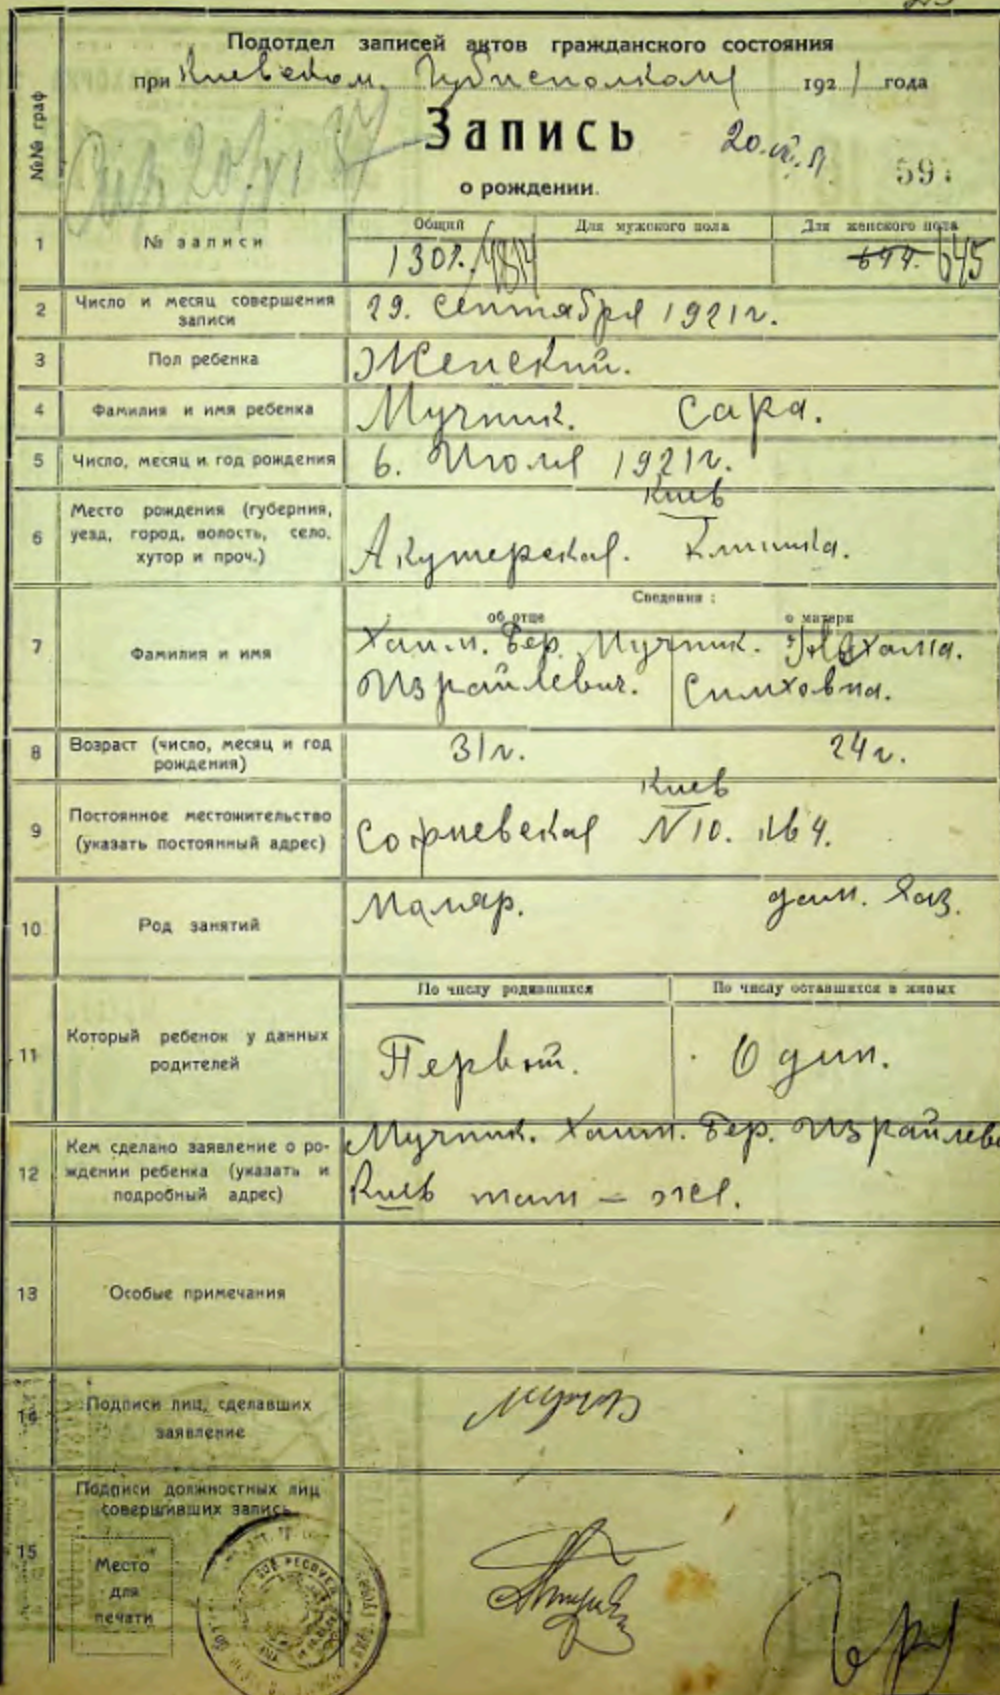 Подотдел записей актов гражданского состояния
при Киевском Губисполкоме 1921 года
№№ граф
Запись
о рождении.
1 № записи
Общий Для мужского пола Для женского пола
1307. 644. 645
2 Число и месяц совершения записи
29. Сентября 1921г.
3 Пол ребенка Женский.
4 Фамилия и имя ребенка Мучник. Сара.
5 Число, месяц и год рождения 6. Июля 1921г.
6 Место рождения (губерния,
уезд, город, волость, село,
хутор и проч.)
Киев
Акушерская. Клиника.
Сведения:
об отце о матери
7 Фамилия и имя
Хаим. Бер. Мучник.
Израйлевич. Симховна.
8 Возраст (число, месяц и год
рождения)
31г. 24г.
9 Постоянное местожительство
(указать постоянный адрес)
Киев
Софиевская N10. кв 4.
10 Род занятий Маляр. дом. хоз.
По числу родившихся По числу оставшихся в живых
11 Который ребенок у данных
родителей
Первый. Один.
12 Кем сделано заявление о ро-
ждении ребенка (указать и
подробный адрес)
Мучник. Хаим. Бер. Израйлев
Киев там – же.
13 Особые примечания
14 Подписи лиц, сделавших
заявление
15 Подписи должностных лиц
совершивших запись
Место
для
печати